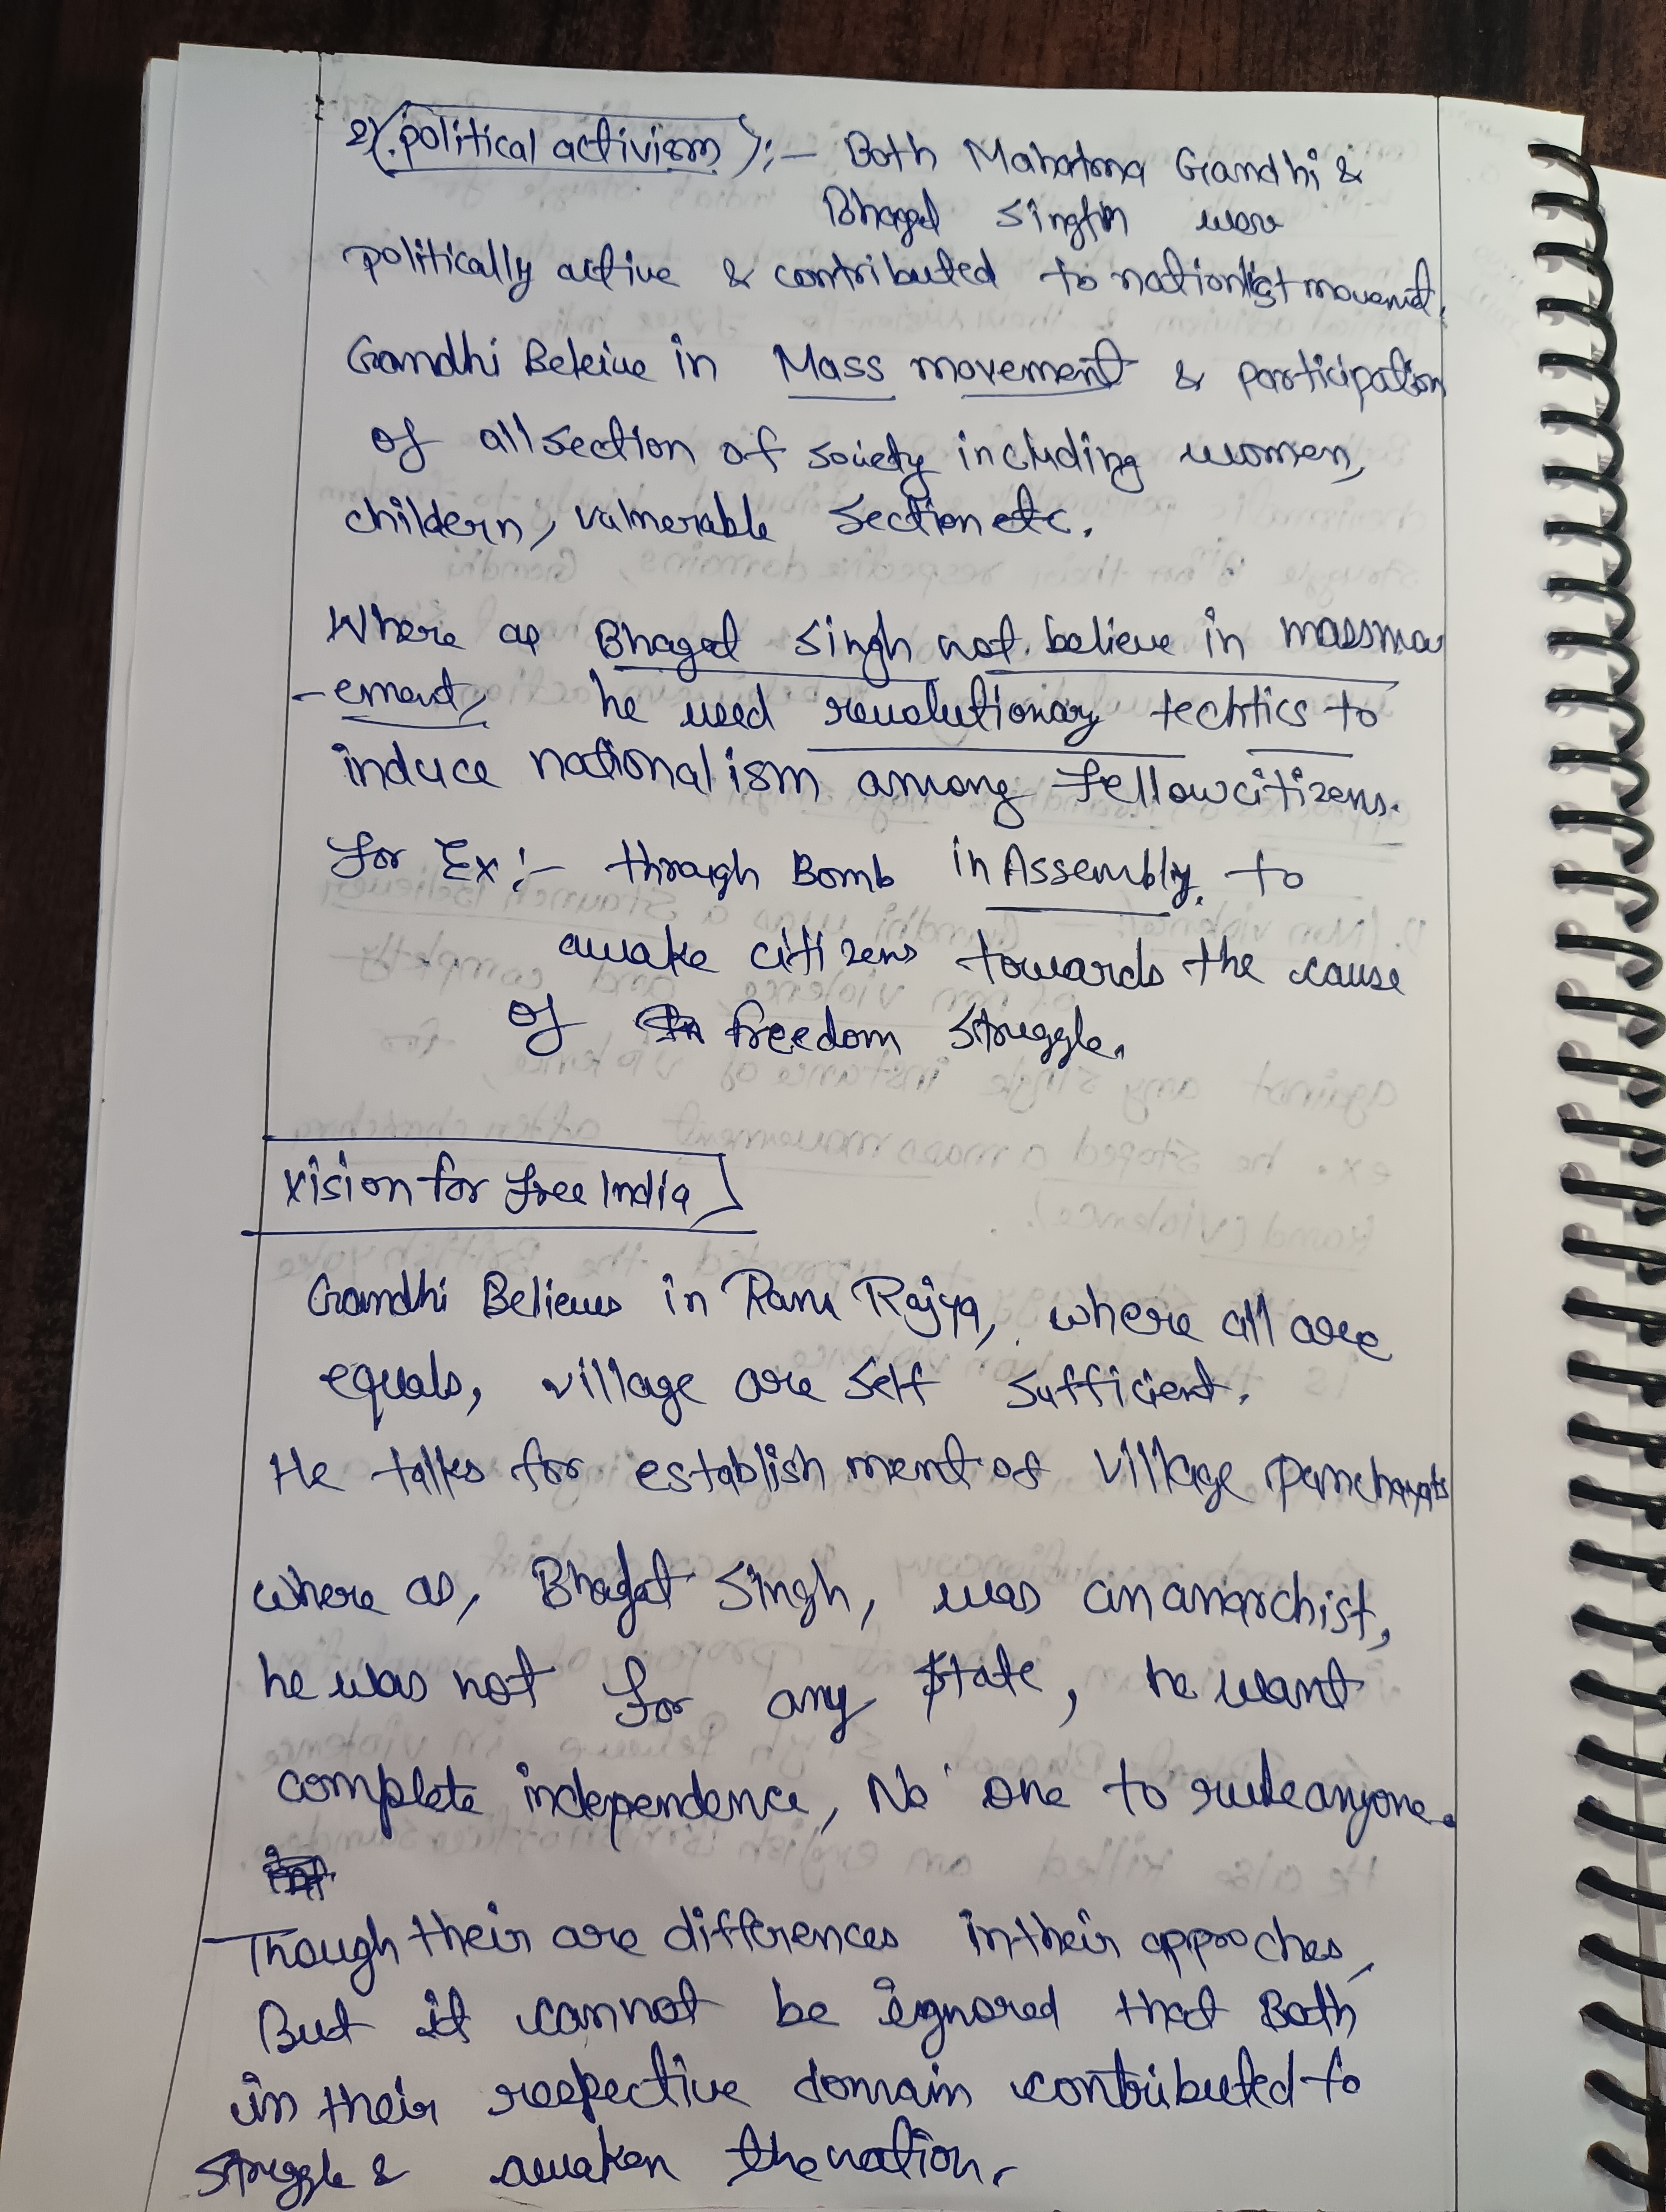 2) (political activism) :- Both Mahatma Gandhi &
Bhagat Singh were
politically active & contributed to nationlist movemet.
Gandhi Beleive in Mass movement & participation
of all section of society including women,
childern, valnerable section etc.
Where as Bhagat Singh not believe in massmov
-ement, he used revolutionary techtics to
induce nationalism among fellow citizens.
for Ex:- through Bomb in Assembly, to
awake citizens towards the cause
of freedom struggle.
Vision for free India
Gandhi Believes in Ram Rajya, where all are
equals, village are self sufficient.
He talks for establishment of village panchayats
where as, Bhagat Singh, was an anarchist,
he was not for any state, he want
complete independence, No one to rule anyone.
Though their are differences in their approches,
But it cannot be ignored that Both
in their respective domain contributed to
struggle & awaken the nation.